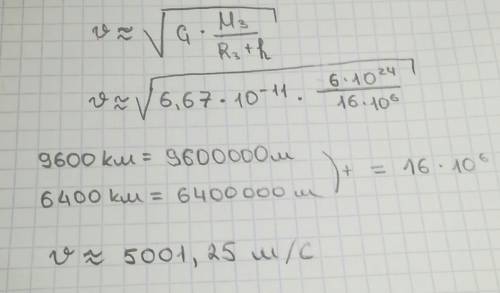 v ≈ √(G · M₃ / (R₃ + h))
v ≈ √(6,67 · 10⁻¹¹ · 6·10²⁴ / 16·10⁶)
9600 км = 9600000 м
6400 км = 6400000 м ) + = 16 · 10⁶
v ≈ 5001,25 м/с